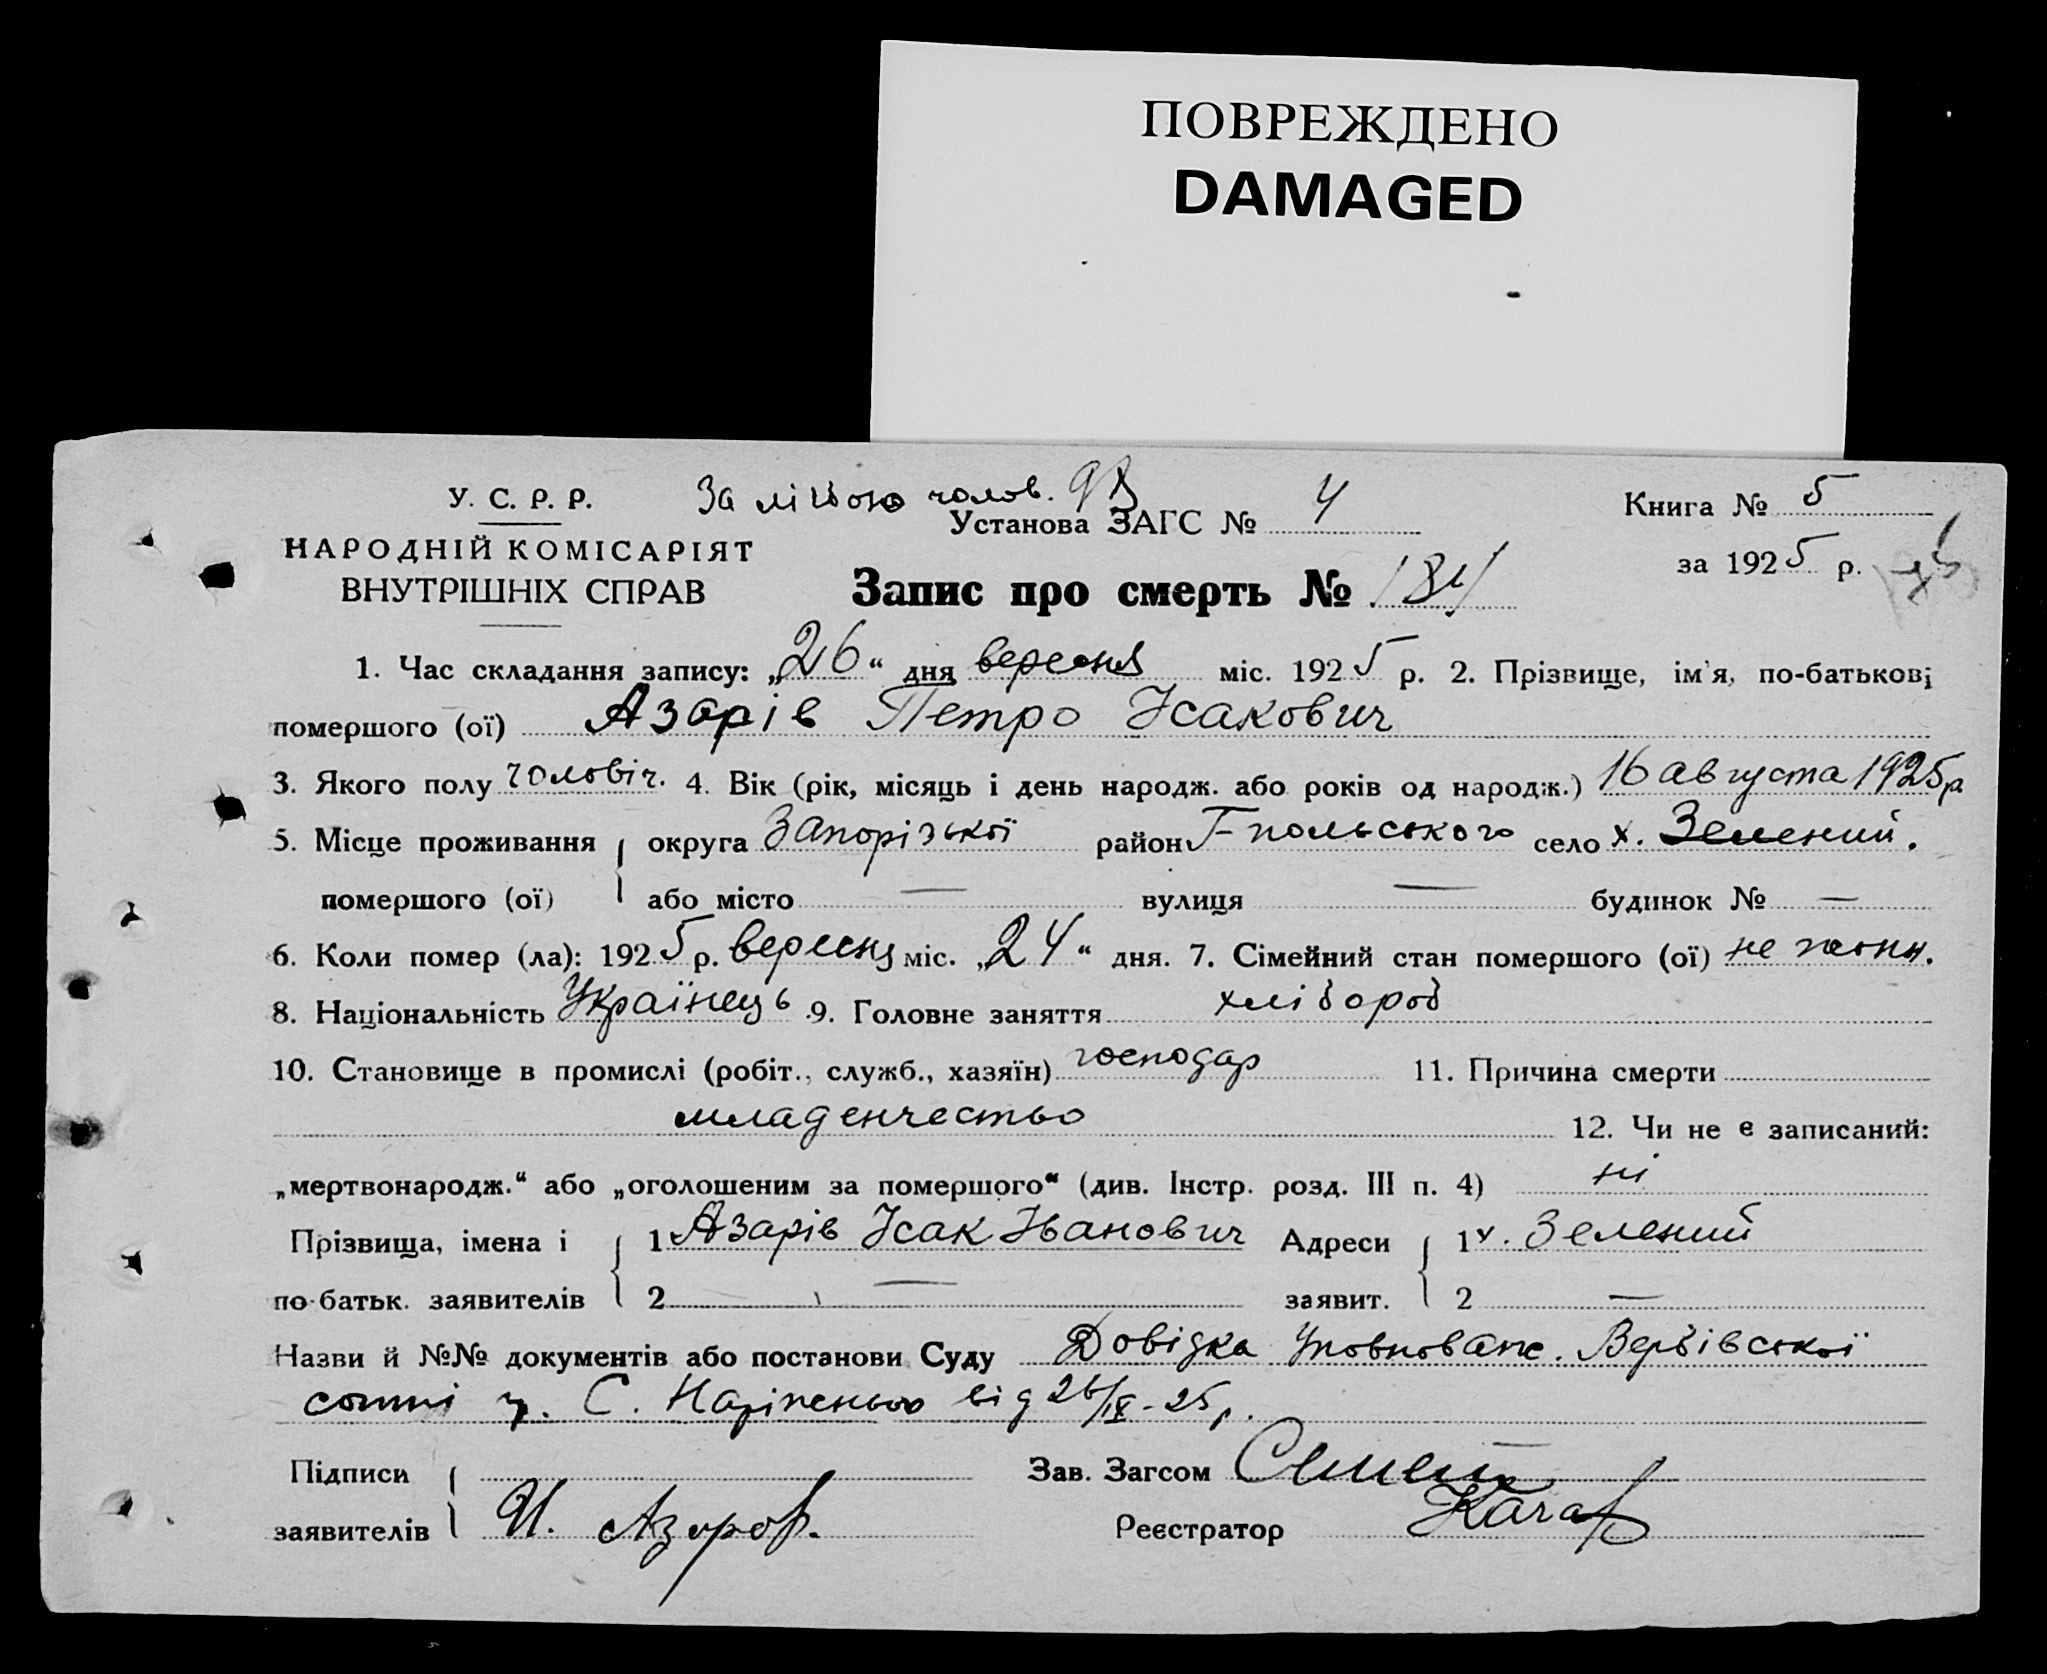 ПОВРЕЖДЕНО
DAMAGED
У. С. Р. Р.
НАРОДНІЙ КОМІСАРІЯТ
ВНУТРІШНІХ СПРАВ
За лічбою чолов. 93
Установа ЗАГС № 4
Книга № 5
за 1925 р.
Запис про смерть № 184
1. Час складання запису: „26“ дня вересня міс. 1925 р. 2. Прізвище, ім'я, по-батькові
помершого (ої) Азарів Петро Ісакович
3. Якого полу чоловіч. 4. Вік (рік, місяць і день народж. або років од народж.) 16 августа 1925 р
5. Місце проживання округа Запорізької район Г-польського село х. Зелений.
помершого (ої) або місто — вулиця — будинок № —
6. Коли помер (ла): 1925 р. вересня міс. „24“ дня. 7. Сімейний стан помершого (ої) не жонн.
8. Національність Українець 9. Головне заняття хлібороб
10. Становище в промислі (робіт., служб., хазяїн) господар 11. Причина смерти
младенчество 12. Чи не є записаний:
„мертвонародж.“ або „оголошеним за помершого“ (див. Інстр. розд. III п. 4) ні
Прізвища, імена і 1 Азарів Ісак Іванович Адреси 1 х. Зелений
по-батьк. заявителів 2 — заявит. 2 —
Назви й №№ документів або постанови Суду Довідка Уповноваж. Вербівської
сотні від 26/IX-25 р.
Підписи Зав. Загсом
заявителів И. Азаров. Реєстратор